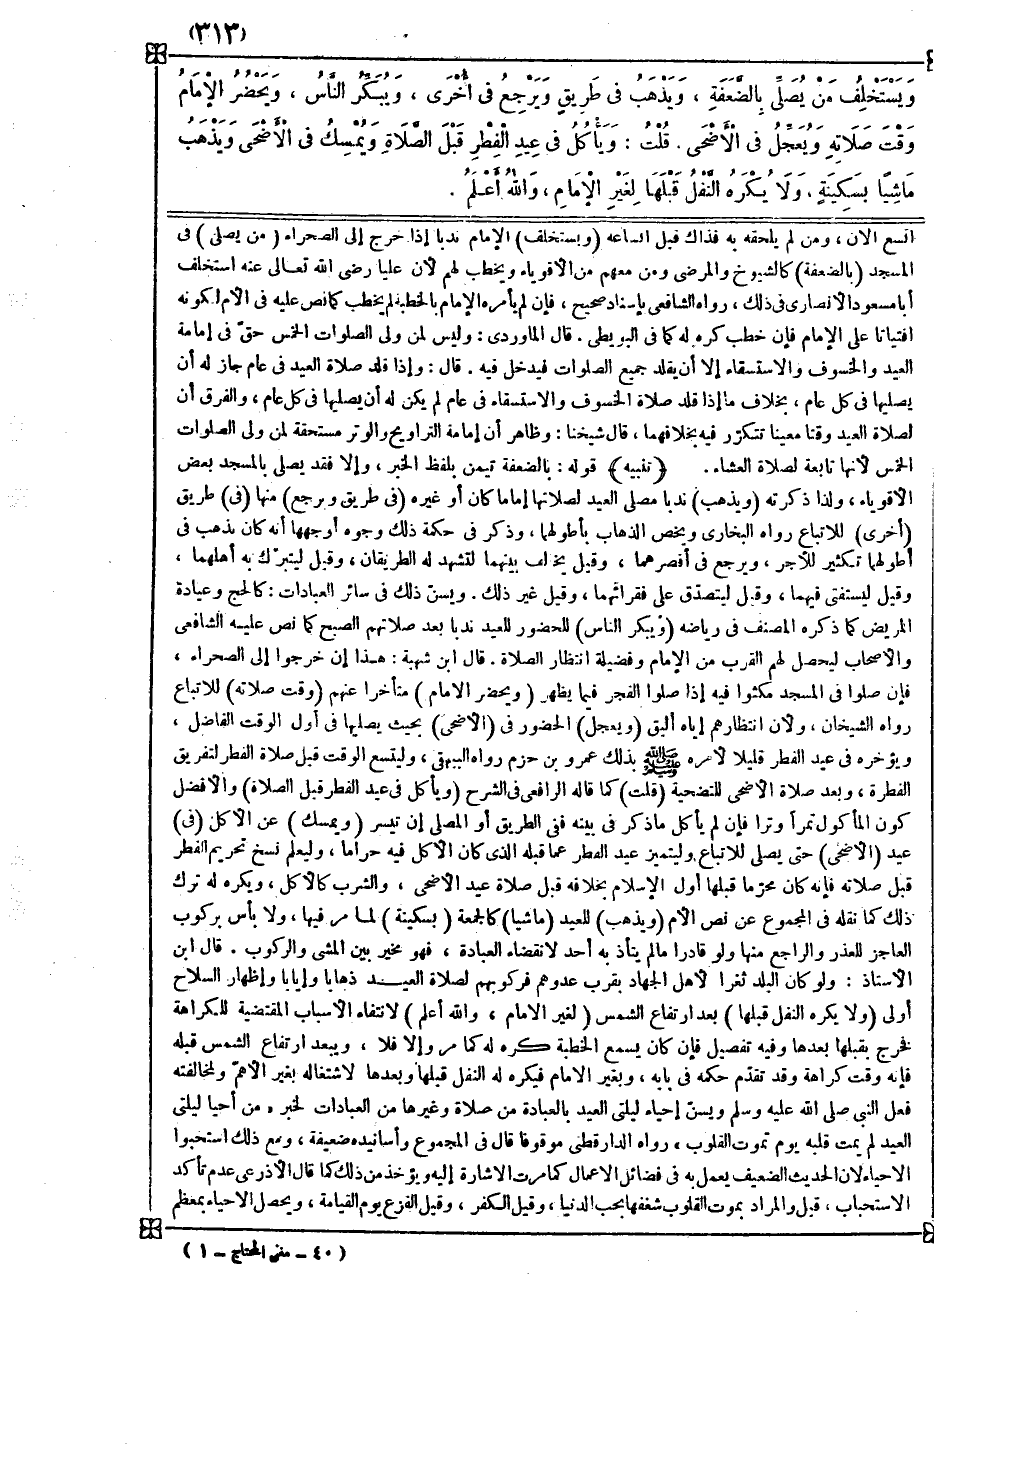 (٣١٣)
وَيَسْتَخْلِفُ مَنْ يُصَلِّى بِالضَّعَفَةِ ، وَيَذْهَبُ فى طَرِيقٍ وَيَرْجِعُ فى أُخْرَى ، وَيُبَكِّرُ النَّاسُ ، وَيَحْضُرُ الْإِمَامُ
وَقْتَ صَلَاتِهِ وَيُعَجِّلُ فى الْأَضْحَى . قُلْتُ : وَيَأْكُلُ فى عِيدِ الْفِطْرِ قَبْلَ الصَّلَاةِ وَيُمْسِكُ فى الْأَضْحَى وَيَذْهَبُ
مَاشِيًا بِسَكِينَةٍ ، وَلَا يُكْرَهُ النَّفْلُ قَبْلَهَا لِغَيْرِ الْإِمَامِ ، وَاللهُ أَعْلَمُ .
اتسع الآن ، ومن لم يلحقه به فذاك قبل اتساعه (ويستخلف) الإمام ندبا إذا خرج إلى الصحراء (من يصلى) فى
المسجد (بالضعفة) كالشيوخ والمرضى ومن معهم من الأقوياء ويخطب لهم لأن عليا رضى الله تعالى عنه استخلف
أبا مسعود الأنصارى فى ذلك ، رواه الشافعى بإسناد صحيح ، فإن لم يأمره الإمام بالخطبة لم يخطب كما نص عليه فى الأم لكونه
افتياتا على الإمام فإن خطب كره له كما فى البويطى . قال الماوردى : وليس لمن ولى الصلوات الخمس حق فى إمامة
العيد والخسوف والاستسقاء إلا أن يقلد جميع الصلوات فيدخل فيه . قال : وإذا قلد صلاة العيد فى عام جاز له أن
يصليها فى كل عام ، بخلاف ما إذا قلد صلاة الخسوف والاستسقاء فى عام لم يكن له أن يصليها فى كل عام ، والفرق أن
لصلاة العيد وقتا معينا تتكرّر فيه بخلافهما ، قال شيخنا : وظاهر أن إمامة التراويح والوتر مستحقة لمن ولى الصلوات
الخمس لأنها تابعة لصلاة العشاء . ﴿ تنبيه ﴾ قوله : بالضعفة تيمن بلفظ الخبر ، وإلا فقد يصلى بالمسجد بعض
الأقوياء ، ولذا ذكرته (ويذهب) ندبا مصلى العيد لصلاتها إماما كان أو غيره (فى طريق ويرجع) منها (فى) طريق
(أخرى) للاتباع رواه البخارى ويخص الذهاب بأطولهما ، وذكر فى حكمة ذلك وجوه أوجهها أنه كان يذهب فى
أطولهما تكثير للأجر ، ويرجع فى أقصرهما ، وقيل يخالف بينهما لتشهد له الطريقان ، وقيل ليتبرّك به أهلهما ،
وقيل ليستفتى فيهما ، وقيل ليتصدّق على فقرائهما ، وقيل غير ذلك . ويسنّ ذلك فى سائر العبادات : كالحج وعيادة
المريض كما ذكره المصنف فى رياضه (ويبكر الناس) للحضور للعيد ندبا بعد صلاتهم الصبح كما نص عليه الشافعى
والأصحاب ليحصل لهم القرب من الإمام وفضيلة انتظار الصلاة . قال ابن شهبة : هذا إن خرجوا إلى الصحراء ،
فإن صلوا فى المسجد مكثوا فيه إذا صلوا الفجر فيما يظهر ( ويحضر الامام ) متأخرا عنهم (وقت صلاته) للاتباع
رواه الشيخان ، ولأن انتظارهم إياه أليق (ويعجل) الحضور فى (الأضحى) بحيث يصليها فى أول الوقت الفاضل ،
ويؤخره فى عيد الفطر قليلا لأمره ﷺ بذلك عمرو بن حزم رواه البيهقى ، وليتسع الوقت قبل صلاة الفطر لتفريق
الفطرة ، وبعد صلاة الأضحى للتضحية (قلت) كما قاله الرافعى فى الشرح (ويأكل فى عيد الفطر قبل الصلاة) والأفضل
كون المأكول تمرا وترا فإن لم يأكل ما ذكر فى بيته ففى الطريق أو المصلى إن تيسر ( ويمسك ) عن الأكل (فى)
عيد (الأضحى) حتى يصلى للاتباع وليتميز عيد الفطر عما قبله الذى كان الأكل فيه حراما ، وليعلم نسخ تحريم الفطر
قبل صلاته فإنه كان محرّما قبلها أول الإسلام بخلافه قبل صلاة عيد الأضحى ، والشرب كالأكل ، ويكره له ترك
ذلك كما نقله فى المجموع عن نص الأم (ويذهب) للعيد (ماشيا) كالجمعة (بسكينة) لما مر فيها ، ولا بأس بركوب
العاجز للعذر والراجع منها ولو قادرا مالم يتأذ به أحد لانقضاء العبادة ، فهو مخير بين المشى والركوب . قال ابن
الأستاذ : ولو كان البلد ثغرا لأهل الجهاد بقرب عدوهم فركوبهم لصلاة العيد ذهابا وإيابا وإظهار السلاح
أولى (ولا يكره النفل قبلها ) بعد ارتفاع الشمس ( لغير الامام ، والله أعلم ) لانتفاء الأسباب المقتضية للكراهة
فخرج بقبلها بعدها وفيه تفصيل فإن كان يسمع الخطبة كره له كما مر وإلا فلا ، وببعد ارتفاع الشمس قبله
فإنه وقت كراهة وقد تقدّم حكمه فى بابه ، وبغير الامام فيكره له النفل قبلها وبعدها لاشتغاله بغير الأهمّ ولمخالفته
فعل النبى صلى الله عليه وسلم ويسنّ إحياء ليلتى العيد بالعبادة من صلاة وغيرها من العبادات لخبر « من أحيا ليلتى
العيد لم يمت قلبه يوم تموت القلوب » رواه الدارقطنى موقوفا قال فى المجموع وأسانيده ضعيفة ، ومع ذلك استحبوا
الاحياء لان الحديث الضعيف يعمل به فى فضائل الاعمال كما مرت الاشارة إليه ويؤخذ من ذلك كما قال الأذرعى عدم تأكد
الاستحباب ، قيل والمراد بموت القلوب شغفها بحب الدنيا ، وقيل الكفر ، وقيل الفزع يوم القيامة ، ويحصل الاحياء بمعظم
( ٤٠ ـ مغنى المحتاج ـ ١ )